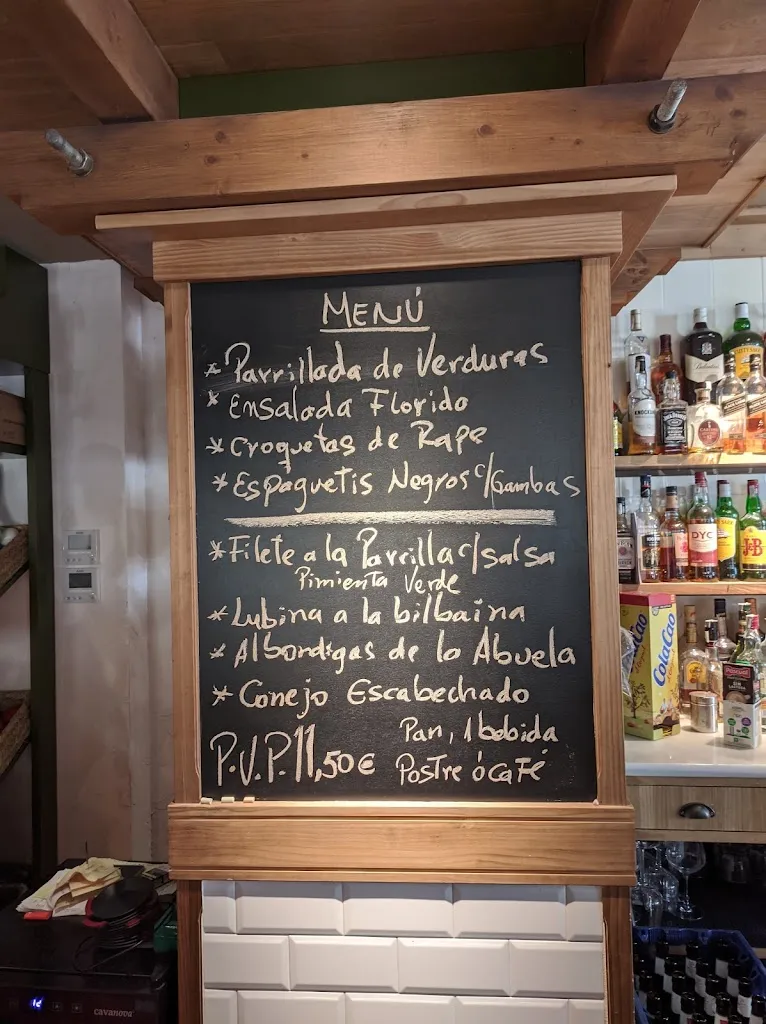 MENÚ
* Parrillada de Verduras
* Ensalada Florido
* Croquetas de Rape
* Espaguetis Negros c/Gambas
* Filete a la Parrilla c/salsa
Pimienta Verde
* Lubina a la bilbaina
* Albondigas de la Abuela
* Conejo Escabechado
Pan, 1 bebida
P.V.P. 11,50€ Postre ó café
ColaCao
ColaCao
DYC
J&B
cavanova